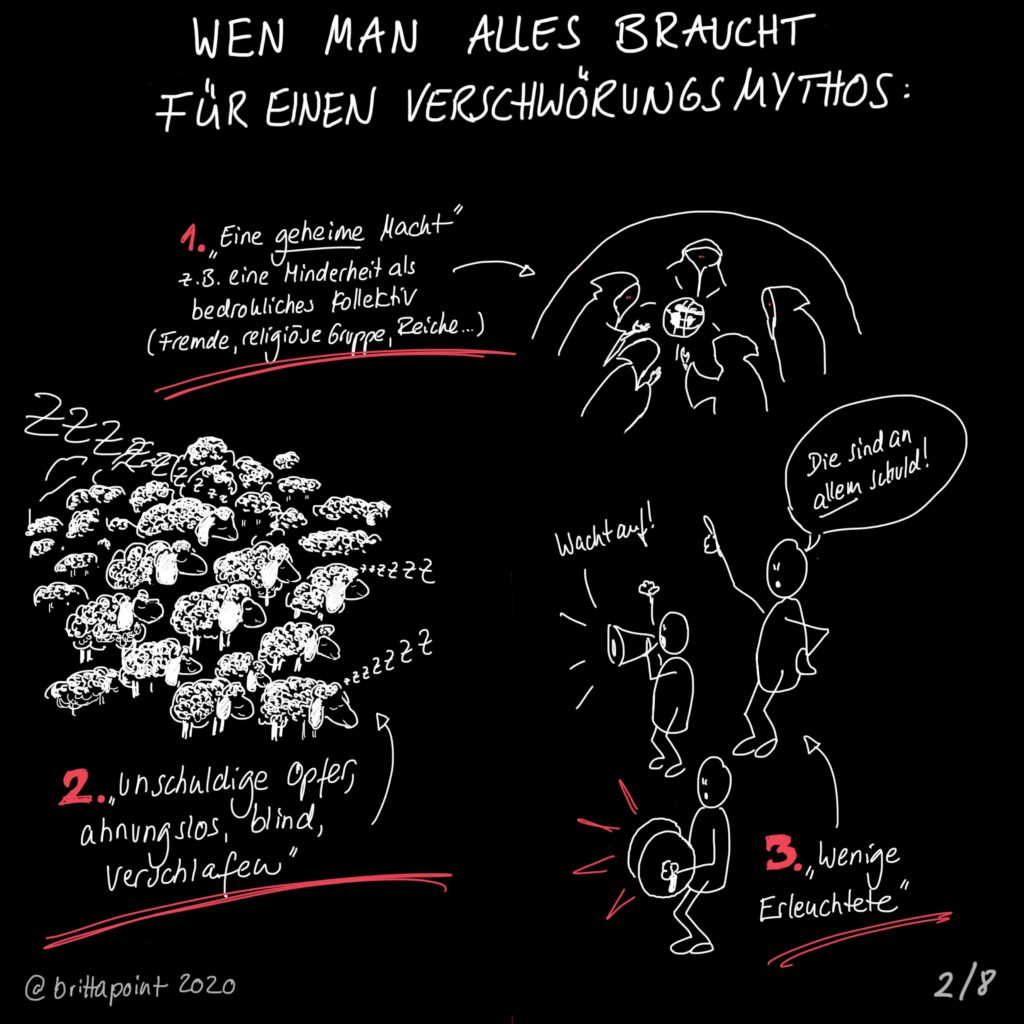 WEN MAN ALLES BRAUCHT
FÜR EINEN VERSCHWÖRUNGSMYTHOS:
1. „Eine geheime Macht“
z.B. eine Minderheit als
bedrohliches Kollektiv
(Fremde, religiöse Gruppe, Reiche...)
ZZZZZZZ
zzz
Die sind an
allem schuld!
Wacht auf!
zzzzzzz
zzzzzzz
2. „unschuldige Opfer,
ahnungslos, blind,
verschlafen“
3. „Wenige
Erleuchtete“
@brittapoint 2020
2/8